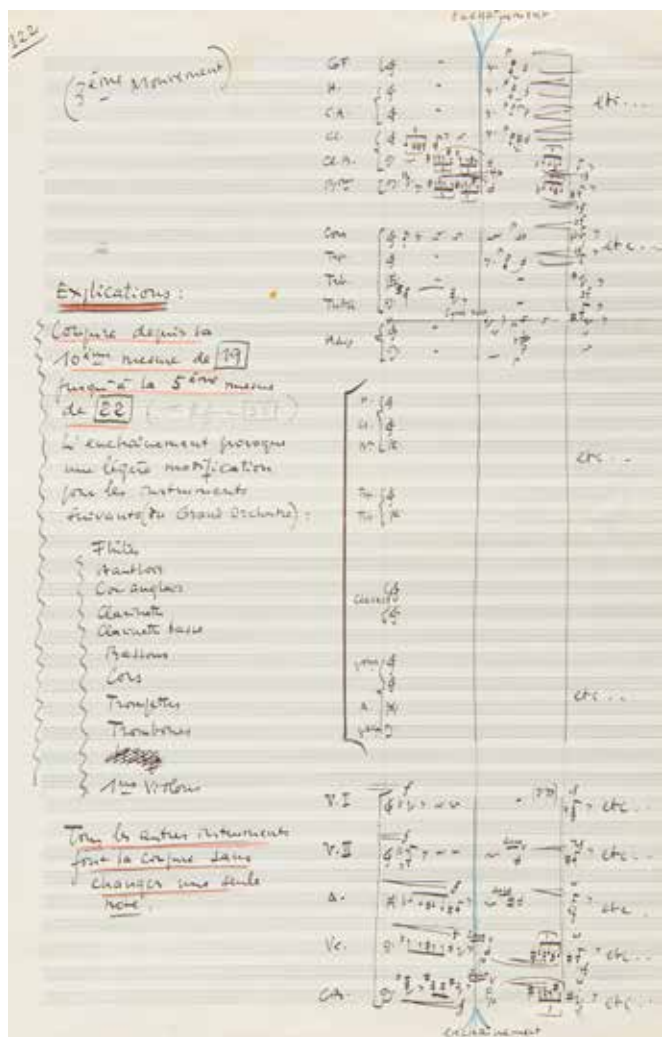 122
enchaînement
(3ème Mouvement)
GF
H.
C.A.
Cl.
Cl.B.
Bon
etc...
Cors
Trp.
Trb.
Tuba
etc...
Explications :
Coupure depuis la
10ème mesure de 19
jusqu'à la 5ème mesure
de 22
L'enchaînement provoque
une légère modification
pour les instruments
suivants (du Grand Orchestre) :
Flûtes
Hautbois
Cor anglais
Clarinette
Clarinette basse
Bassons
Cors
Trompettes
Trombones
1ers Violons
Tous les autres instruments
font la coupure sans
changer une seule
note.
H.
Cl.
Bon
Trp.
Trb.
etc...
A.
etc...
V.I
etc...
V.II
etc...
A.
etc.
Vc.
etc...
C.B.
etc...
enchaînement